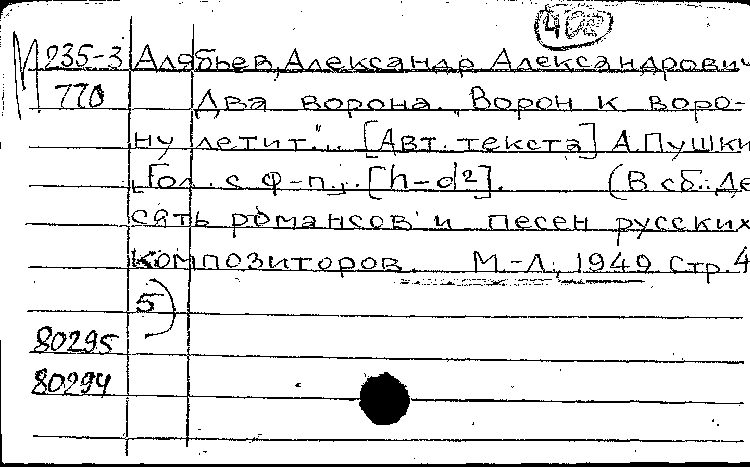 М 235-3 Алябьев, Александр Александрович
770 Два ворона. "Ворон к воро-
ну летит"... [Авт. текста] А. Пушки
Гол. с ф-п., [h-d²]. (В сб.: Де
сять романсов и песен русских
композиторов. М.-Л., 1949. Стр. 4
5)
80295
80294